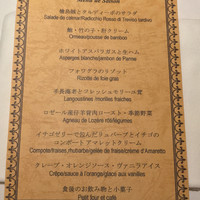 Menu de Saison
Salade de crabe/Radicchio Rosso di Treviso tardivo
鮑・竹の子・肝クリーム
Ormeau/pousse de bambou
ホワイトアスパラガスとセモーム
Asperges blanche/jambon de Parme
フォワグラのリゾット
Rizotto de foie gras
Langoustines rissolées fraiches
ロゼール産仔羊背肉ロースト・季節野菜
Agneau de Lozère rôti/légumes
イチゴゼリーで包んだリュバーブとイチゴの
コンポート アマレットクリーム
Compote/fraises,rhubarbe/gelée de fraise/crème d'Amaretto
クレープ・オレンジソース・ヴァニラアイス
Crêpe/sauce à l'orange/glace aux vanilles
食後のお飲み物と小菓子
Petit four et café